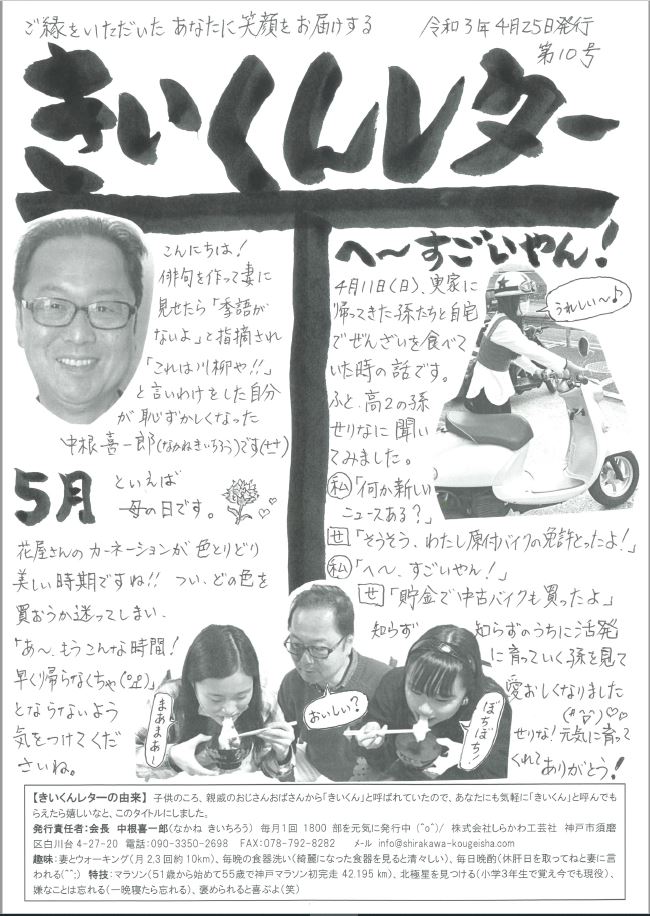 ご縁をいただいた あなたに笑顔をお届けする
令和3年4月25日発行
第10号
きいくんレター
こんにちは!
俳句を作って妻に
見せたら「季語が
ないよ」と指摘され
「これは川柳や!!」
と言いわけをした自分
が恥ずかしくなった
中根喜一郎(なかねきいちろう)です(^^)
5月
といえば
母の日です。
花屋さんのカーネーションが色とりどり
美しい時期ですね!! つい、どの色を
買おうか迷ってしまい、
「あ〜、もうこんな時間!
早くり帰らなくちゃ(°д°)」
とならないよう
気をつけてくだ
さいね。
へ〜すごいやん!
4月11日(日)、実家に
帰ってきた孫たちと自宅
でぜんざいを食べて
いた時の話です。
ふと、高2の孫
せりなに聞い
てみました。
私「何か新しい
ニュースある?」
せ「そうそう、わたし原付バイクの免許とったよ!」
私「へ〜、すごいやん!」
せ「貯金で中古バイクも買ったよ」
知らず
知らずのうちに活発
に育っていく孫を見て
愛おしくなりました
(#^^)♡♡
せりな!元気に育って
くれてありがとう!
うれしい〜♪
まあまあー
おいしい?
ぼちぼち!
【きいくんレターの由来】 子供のころ、親戚のおじさんおばさんから「きいくん」と呼ばれていたので、あなたにも気軽に「きいくん」と呼んでも
らえたら嬉しいなと、このタイトルにしました。
発行責任者:会長 中根喜一郎(なかね きいちろう) 毎月1回 1800 部を元気に発行中 (^o^)/ 株式会社しらかわ工芸社 神戸市須磨
区白川台 4-27-20 電話:090-3350-2698 FAX:078-792-8282 メール info@shirakawa-kougeisha.com
趣味:妻とウオーキング(月 2,3 回約 10km)、毎晩の食器洗い(綺麗になった食器を見ると清々しい)、毎日晩酌(休肝日を取ってねと妻に言
われる(^^;) 特技:マラソン(51歳から始めて55歳で神戸マラソン初完走 42.195 km)、北極星を見つける(小学3年生で覚え今でも現役)、
嫌なことは忘れる(一晩寝たら忘れる)、褒められると喜ぶよ(笑)